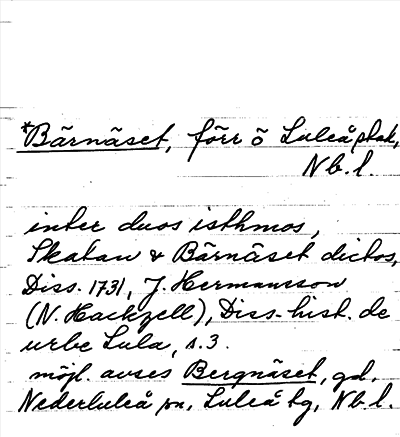 *Bärnäset, förr ö Luleå sksk,
Nb. l.
inter duos isthmos,
Skatan & Bärnäset dictos,
Diss. 1731, J. Hermansson
(N. Hackzell), Diss. hist. de
urbe Lula, s. 3.
möjl. avses Bergnäset, gd,
Nederluleå sn, Luleå tg, Nb. l.